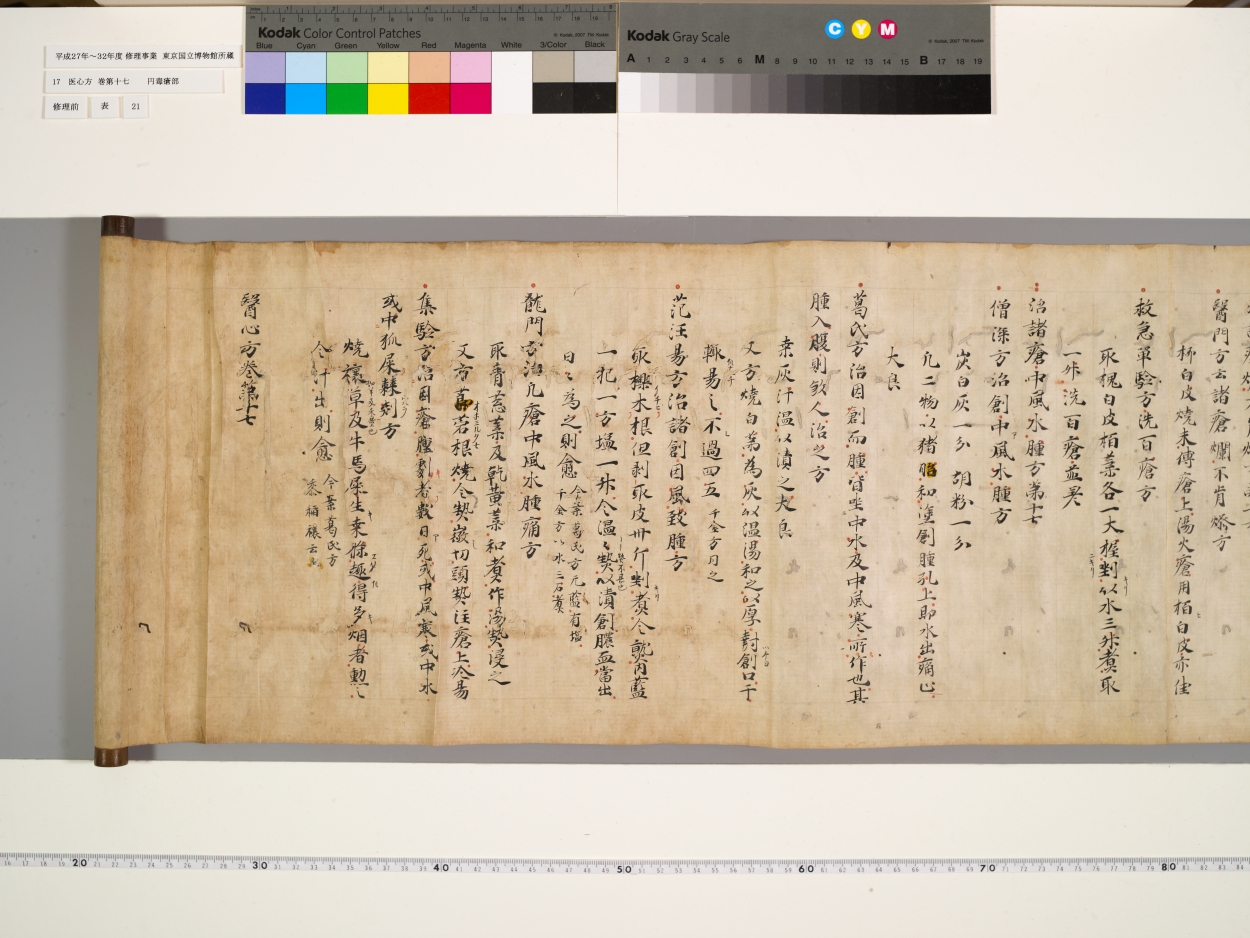 平成27年～32年度 修理事業 東京国立博物館所蔵
17 医心方 巻第十七 円毒瘡部
修理前 表 21
Kodak Color Control Patches
Blue Cyan Green Yellow Red Magenta White 3/Color Black
Kodak Gray Scale
C Y M
A 1 2 3 4 5 6 M 8 9 10 11 12 13 14 15 B 17 18 19
醫門方云諸瘡爛不肯燥方
柳白皮燒末傅瘡上湯火瘡用栢白皮亦佳
救急單驗方洗百瘡方
取槐白皮栢葉各一大握剉以水三升煮取
一升洗百瘡並是
治諸瘡中風水腫方第十七
僧深方治創中風水腫方
炭白灰一分 胡粉一分
凡二物以猪脂和塗創腫孔上即水出痛止
大良
葛氏方治因創而腫皆坐中水及中風寒所作也其
腫入腹則敦人治之方
桒灰汁温以漬之大良
又方燒白茅為灰以温湯和之以厚封創口干
輙易之不過四五 千金方日之
范汪易方治諸創因風致腫方
取櫟木根但剥取皮卅斤剉煮令熟內藍
一把一方塩一升令温々熱以漬創膿血當出
日々為之則愈 今案葛氏方无藍有塩 千金方以水三石煮
龍門方治凡瘡中風水腫痛方
取青葱葉及乾黄葉和煮作湯熱浸之
又方 苕根燒令熱 切頭熱注瘡上冷易
集驗方治因瘡腫劇者數日死或中風寒或中水
或中狐尿棘刺方
燒穰草及牛馬屎生桒條趣得多烟者勲之
令汁出則愈 今案葛氏方
醫心方卷第十七
20 30 40 50 60 70 80